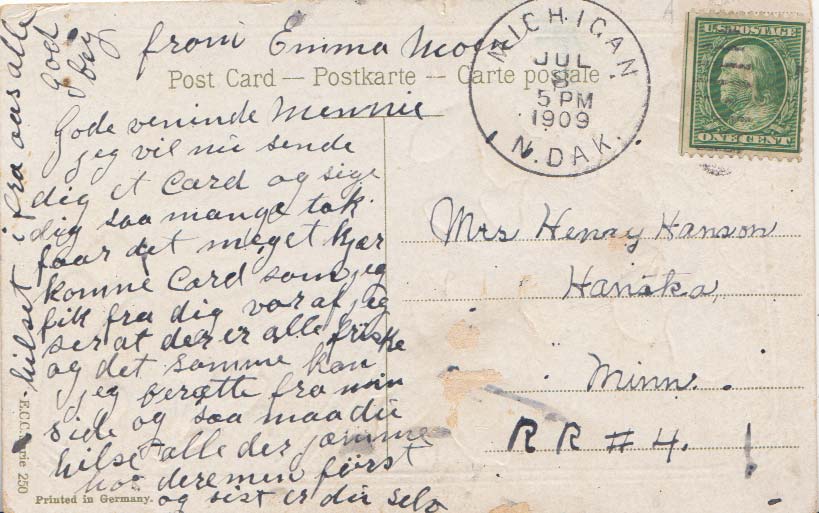 from Emma Moen
Post Card — Postkarte — Carte postale
MICHIGAN
JUL
8
5 PM
1909
N. DAK.
U.S. POSTAGE
ONE CENT
Gode veninde Mennie
jeg vil nu sende
dig et Card og sige
dig saa mange tak
faar det meget kjær
komne Card som jeg
fik fra dig vor af jeg
ser at der er alle friske
og det samme kan
jeg berette fra min
side og saa maa du
hilse alle der jæmme
hos deremen først
og sist er du selv
hilset i fra oas alle
God
by
Mrs Henry Hanson
Hanska,
Minn.
RR # 4.
Printed in Germany.
E.C.C. Serie 250